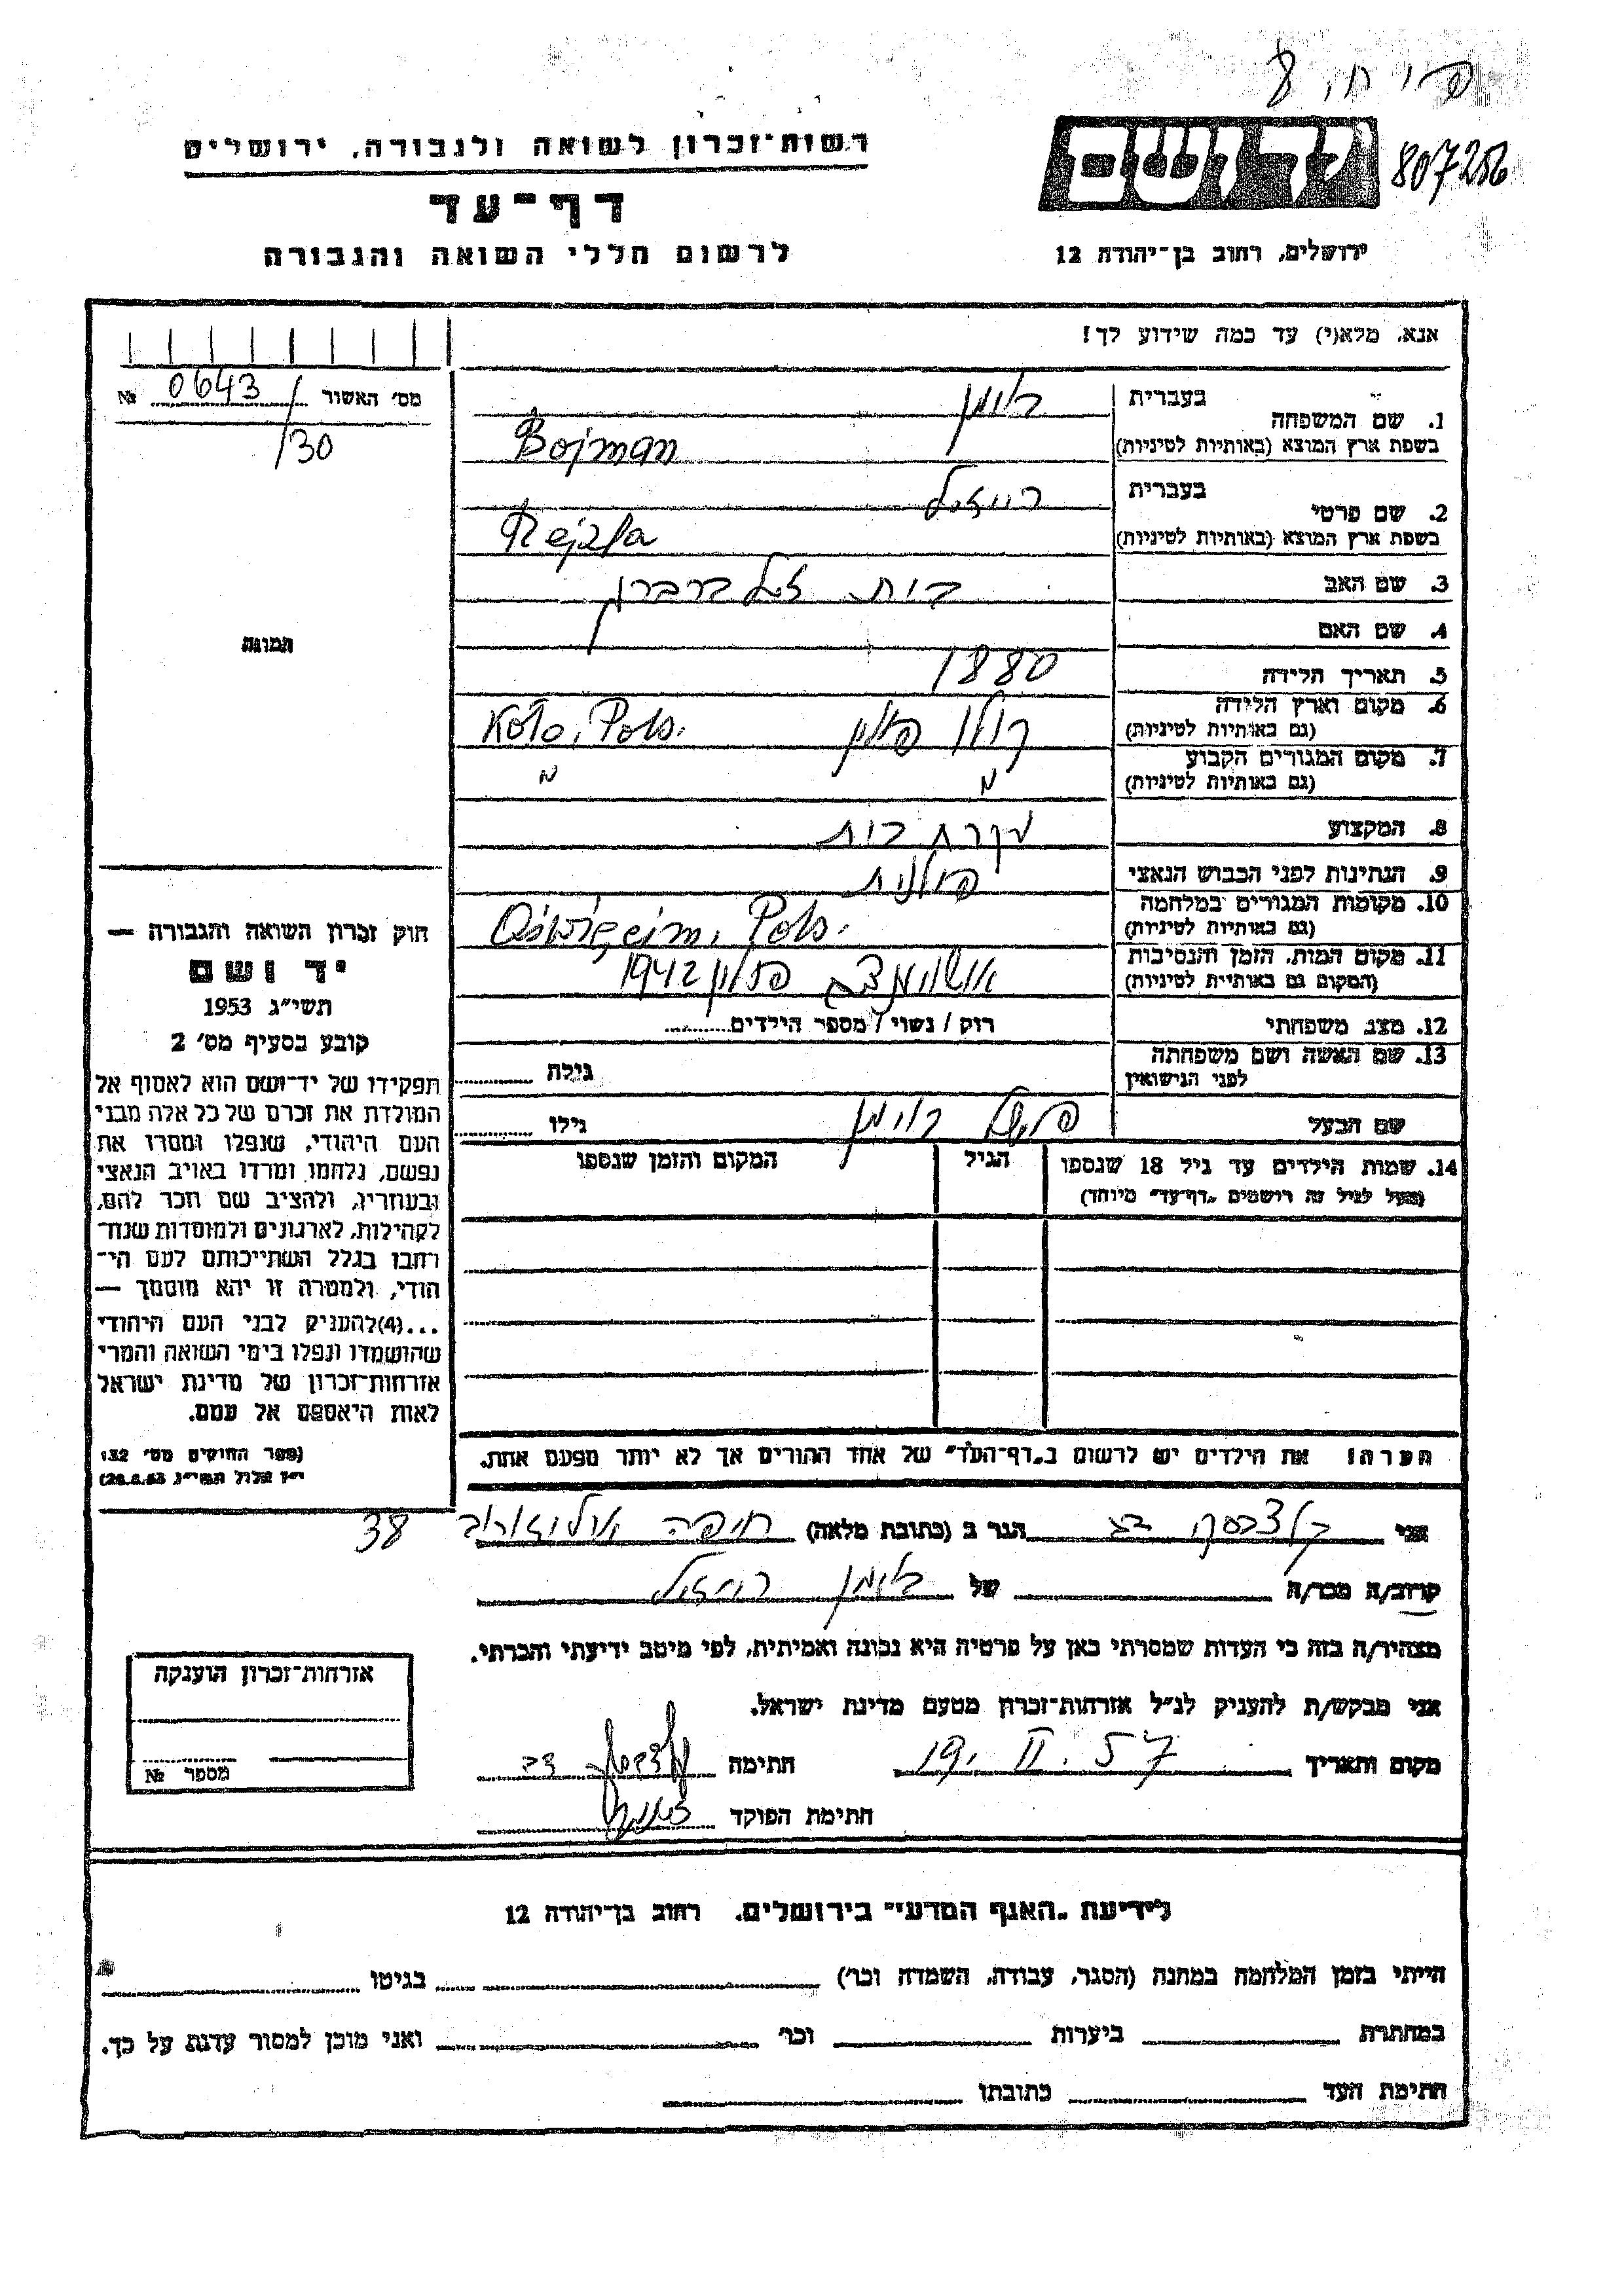 807256
רשות־זכרון לשואה ולגבורה, ירושלים
דף־עד
לרשום חללי השואה והגבורה
יד ושם
ירושלים, רחוב בן־יהודה 12
אנא, מלא(י) עד כמה שידוע לך!
מס׳ האשור 0643 №
/30
תמונה
1. שם המשפחה בעברית בוימן
בשפת ארץ המוצא (באותיות לטיניות) Bojman
2. שם פרטי בעברית רייזל
בשפת ארץ המוצא (באותיות לטיניות) Rejzla
3. שם האב בית
4. שם האם
5. תאריך הלידה 1880
6. מקום וארץ הלידה
(גם באותיות לטיניות) קולו פולין Koło, Pols.
7. מקום המגורים הקבוע
(גם באותיות לטיניות)
8. המקצוע עקרת בית
9. הנתינות לפני הכבוש הנאצי פולנית
10. מקומות המגורים במלחמה
(גם באותיות לטיניות) Pols.
11. מקום המות, הזמן והנסיבות
(המקום גם באותיות לטיניות) פולין 1942
12. מצב משפחתי רוק / נשוי / מספר הילדים
13. שם האשה ושם משפחתה
לפני הנישואין גילה
שם הבעל בוימן גילו
14. שמות הילדים עד גיל 18 שנספו הגיל המקום והזמן שנספו
(מעל לגיל זה רושמים „דף־עד״ מיוחד)
הערה! את הילדים יש לרשום ב„דף־העד״ של אחד ההורים אך לא יותר מפעם אחת.
חוק זכרון השואה והגבורה —
יד ושם
תשי״ג 1953
קובע בסעיף מס׳ 2
תפקידו של יד־ושם הוא לאסוף אל
המולדת את זכרם של כל אלה מבני
העם היהודי, שנפלו ומסרו את
נפשם, נלחמו ומרדו באויב הנאצי
ובעוזריו, ולהציב שם וזכר להם,
לקהילות, לארגונים ולמוסדות שנח־
רבו בגלל השתייכותם לעם הי־
הודי, ולמטרה זו יהא מוסמך —
...(4)להעניק לבני העם היהודי
שהושמדו ונפלו בימי השואה והמרי
אזרחות־זכרון של מדינת ישראל
לאות היאספם אל עמם.
(ספר החוקים מס׳ 132
י״ז אלול תשי״ג 28.8.53)
אני הגר ב (כתובת מלאה) חיפה 38
קרוב/ה מכר/ה של בוימן רייזל
מצהיר/ה בזה כי העדות שמסרתי כאן על פרטיה היא נכונה ואמיתית, לפי מיטב ידיעתי והכרתי.
אני מבקש/ת להעניק לנ״ל אזרחות־זכרון מטעם מדינת ישראל.
מקום ותאריך 19. II. 57 חתימה
חתימת הפוקד
אזרחות־זכרון הוענקה
מספר №
לידיעת „האגף המדעי״ בירושלים, רחוב בן־יהודה 12
הייתי בזמן המלחמה במחנה (הסגר, עבודה, השמדה וכו׳) בגיטו
במחתרת ביערות וכו׳ ואני מוכן למסור עדות על כך.
חתימת העד כתובתו